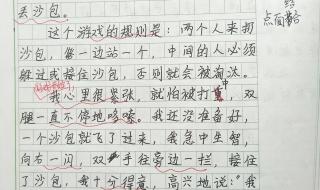 丢沙包。
这个游戏的规则是：两个人来扔
沙包，每一边站一个，中间的人必须
躲过或接住沙包，否则就会被淘汰。
我心里很紧张，就怕被打中，双
腿一直不停地哆嗦。我还没准备好，
一个沙包就飞了过来，我急中生智，
向右一闪，双手往旁边一拦，接住
了沙包，我十分得意，高兴地说："我
点面结合